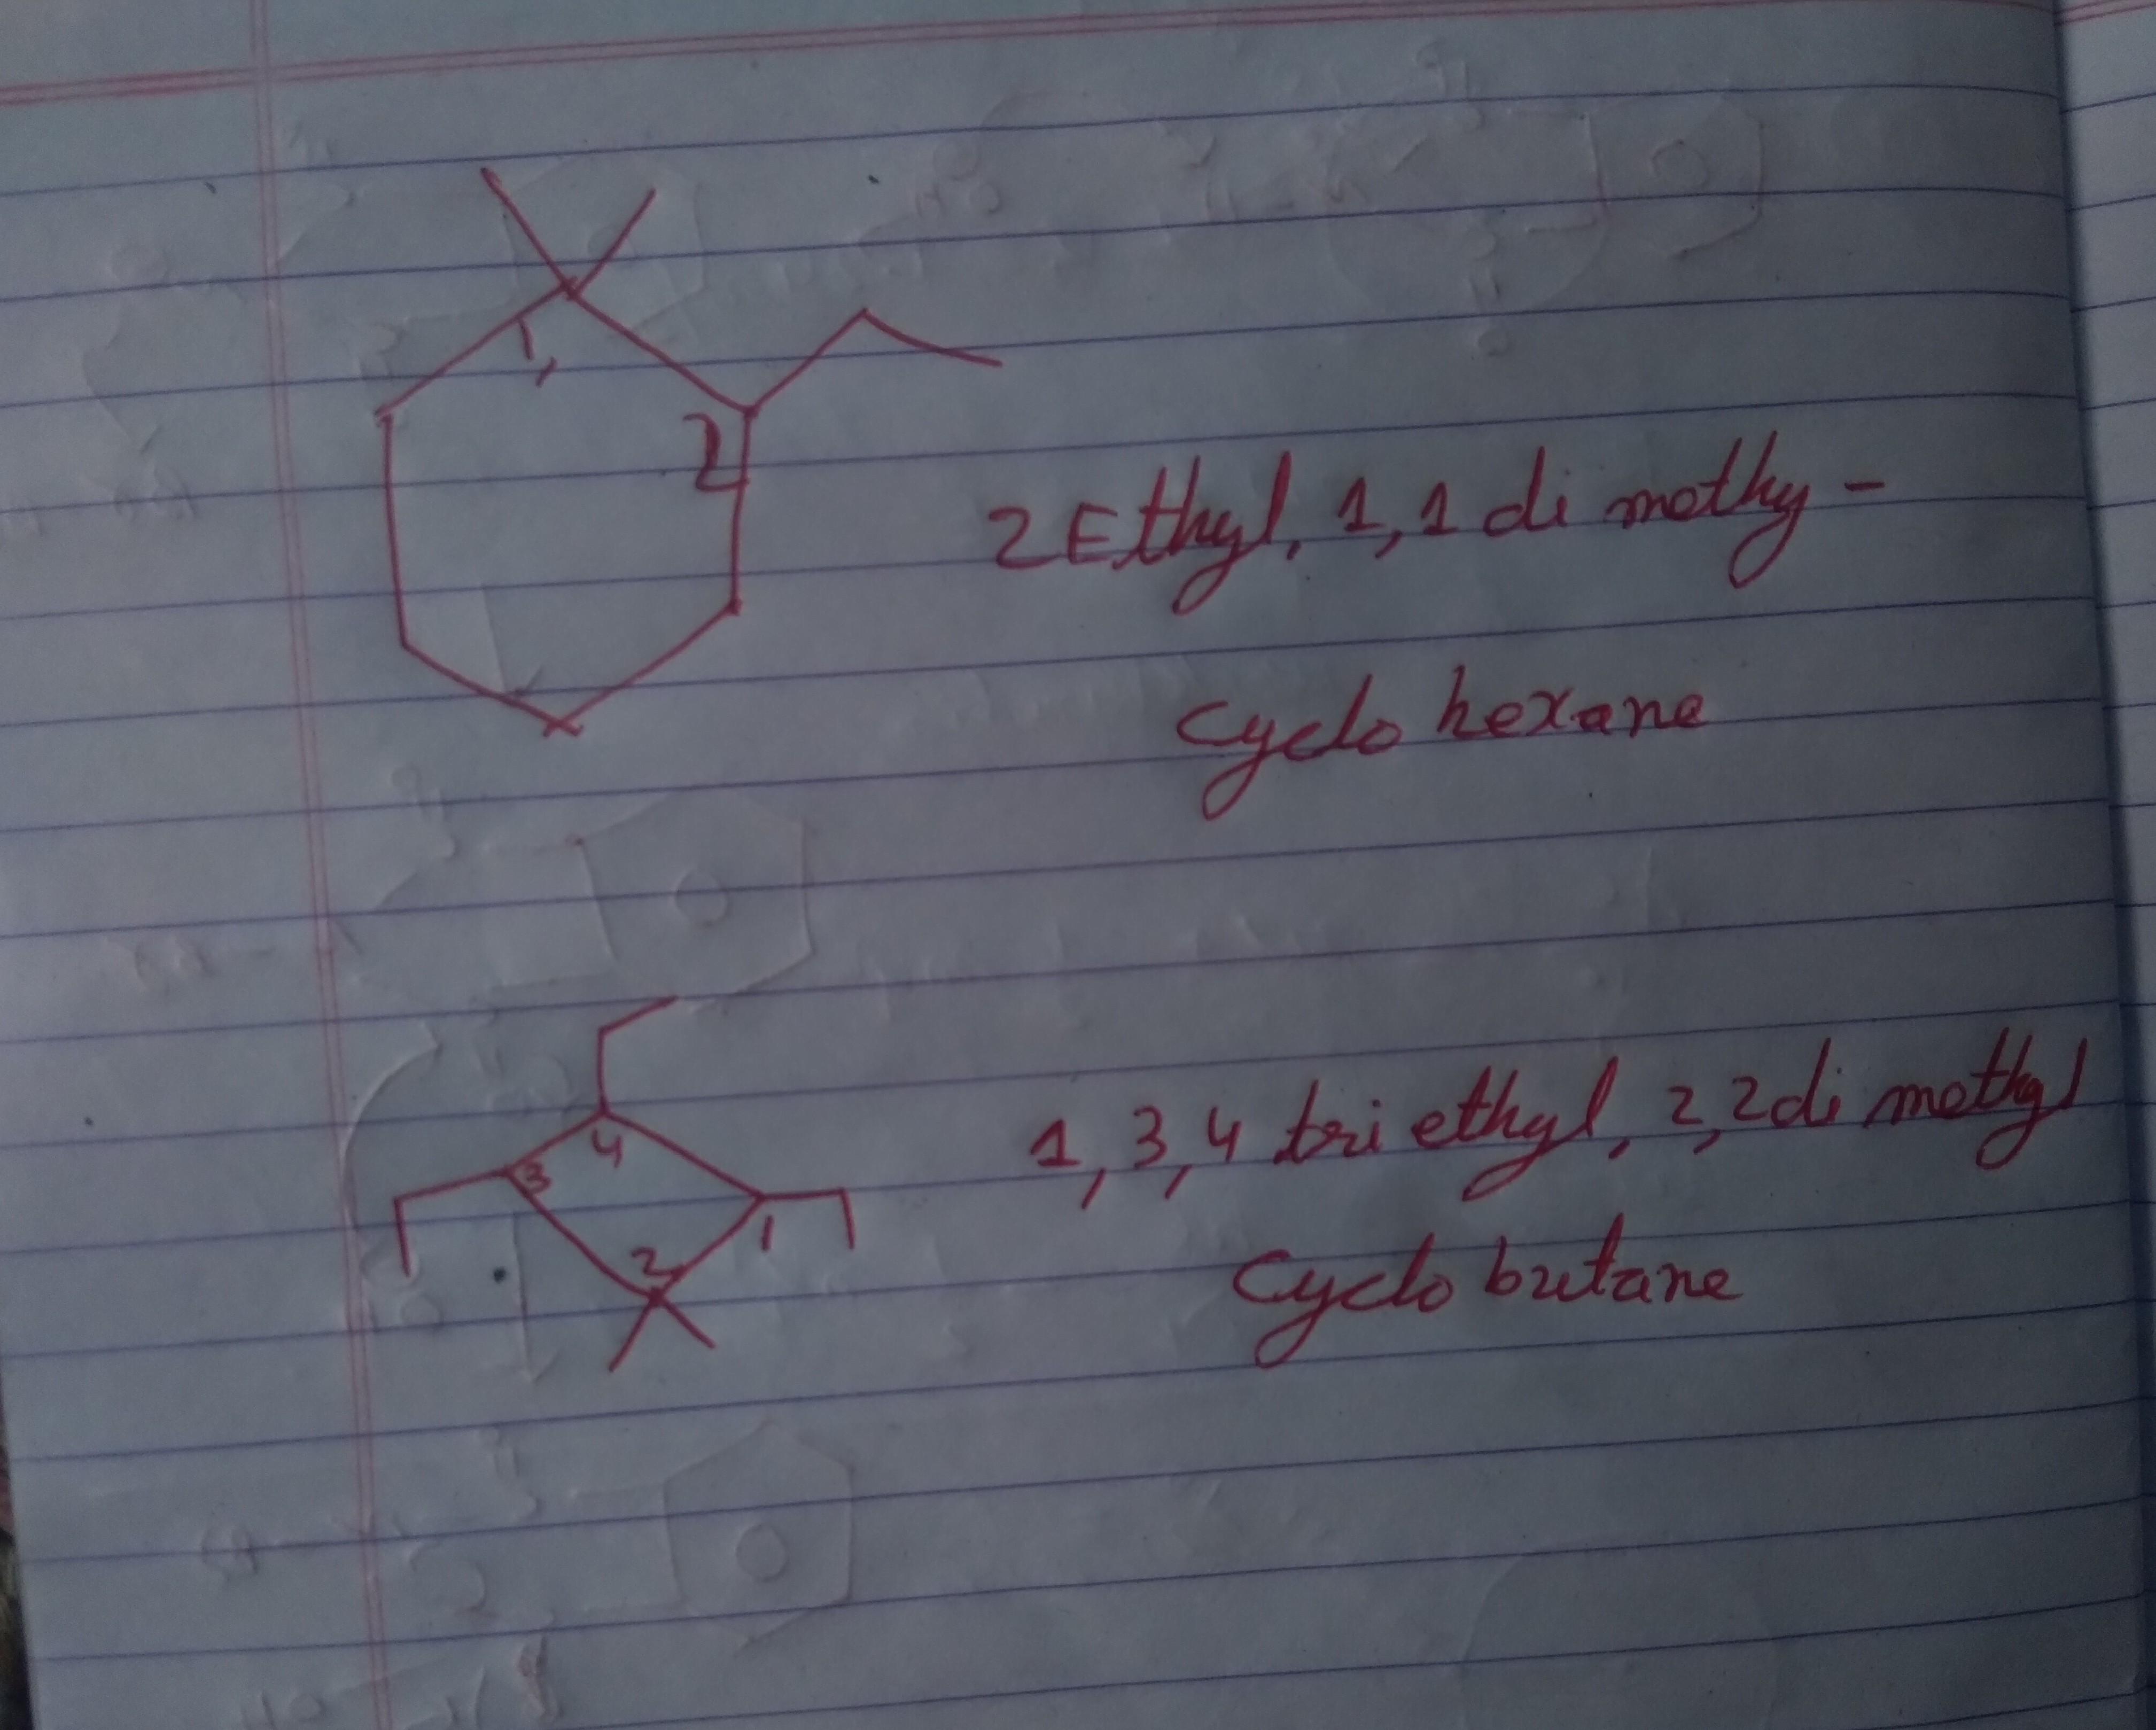 1,
2
2 Ethyl, 1,1 di methy -
cyclo hexane
4
3
1
2
1,3,4 tri ethyl, 2,2 di methyl
Cyclo butane